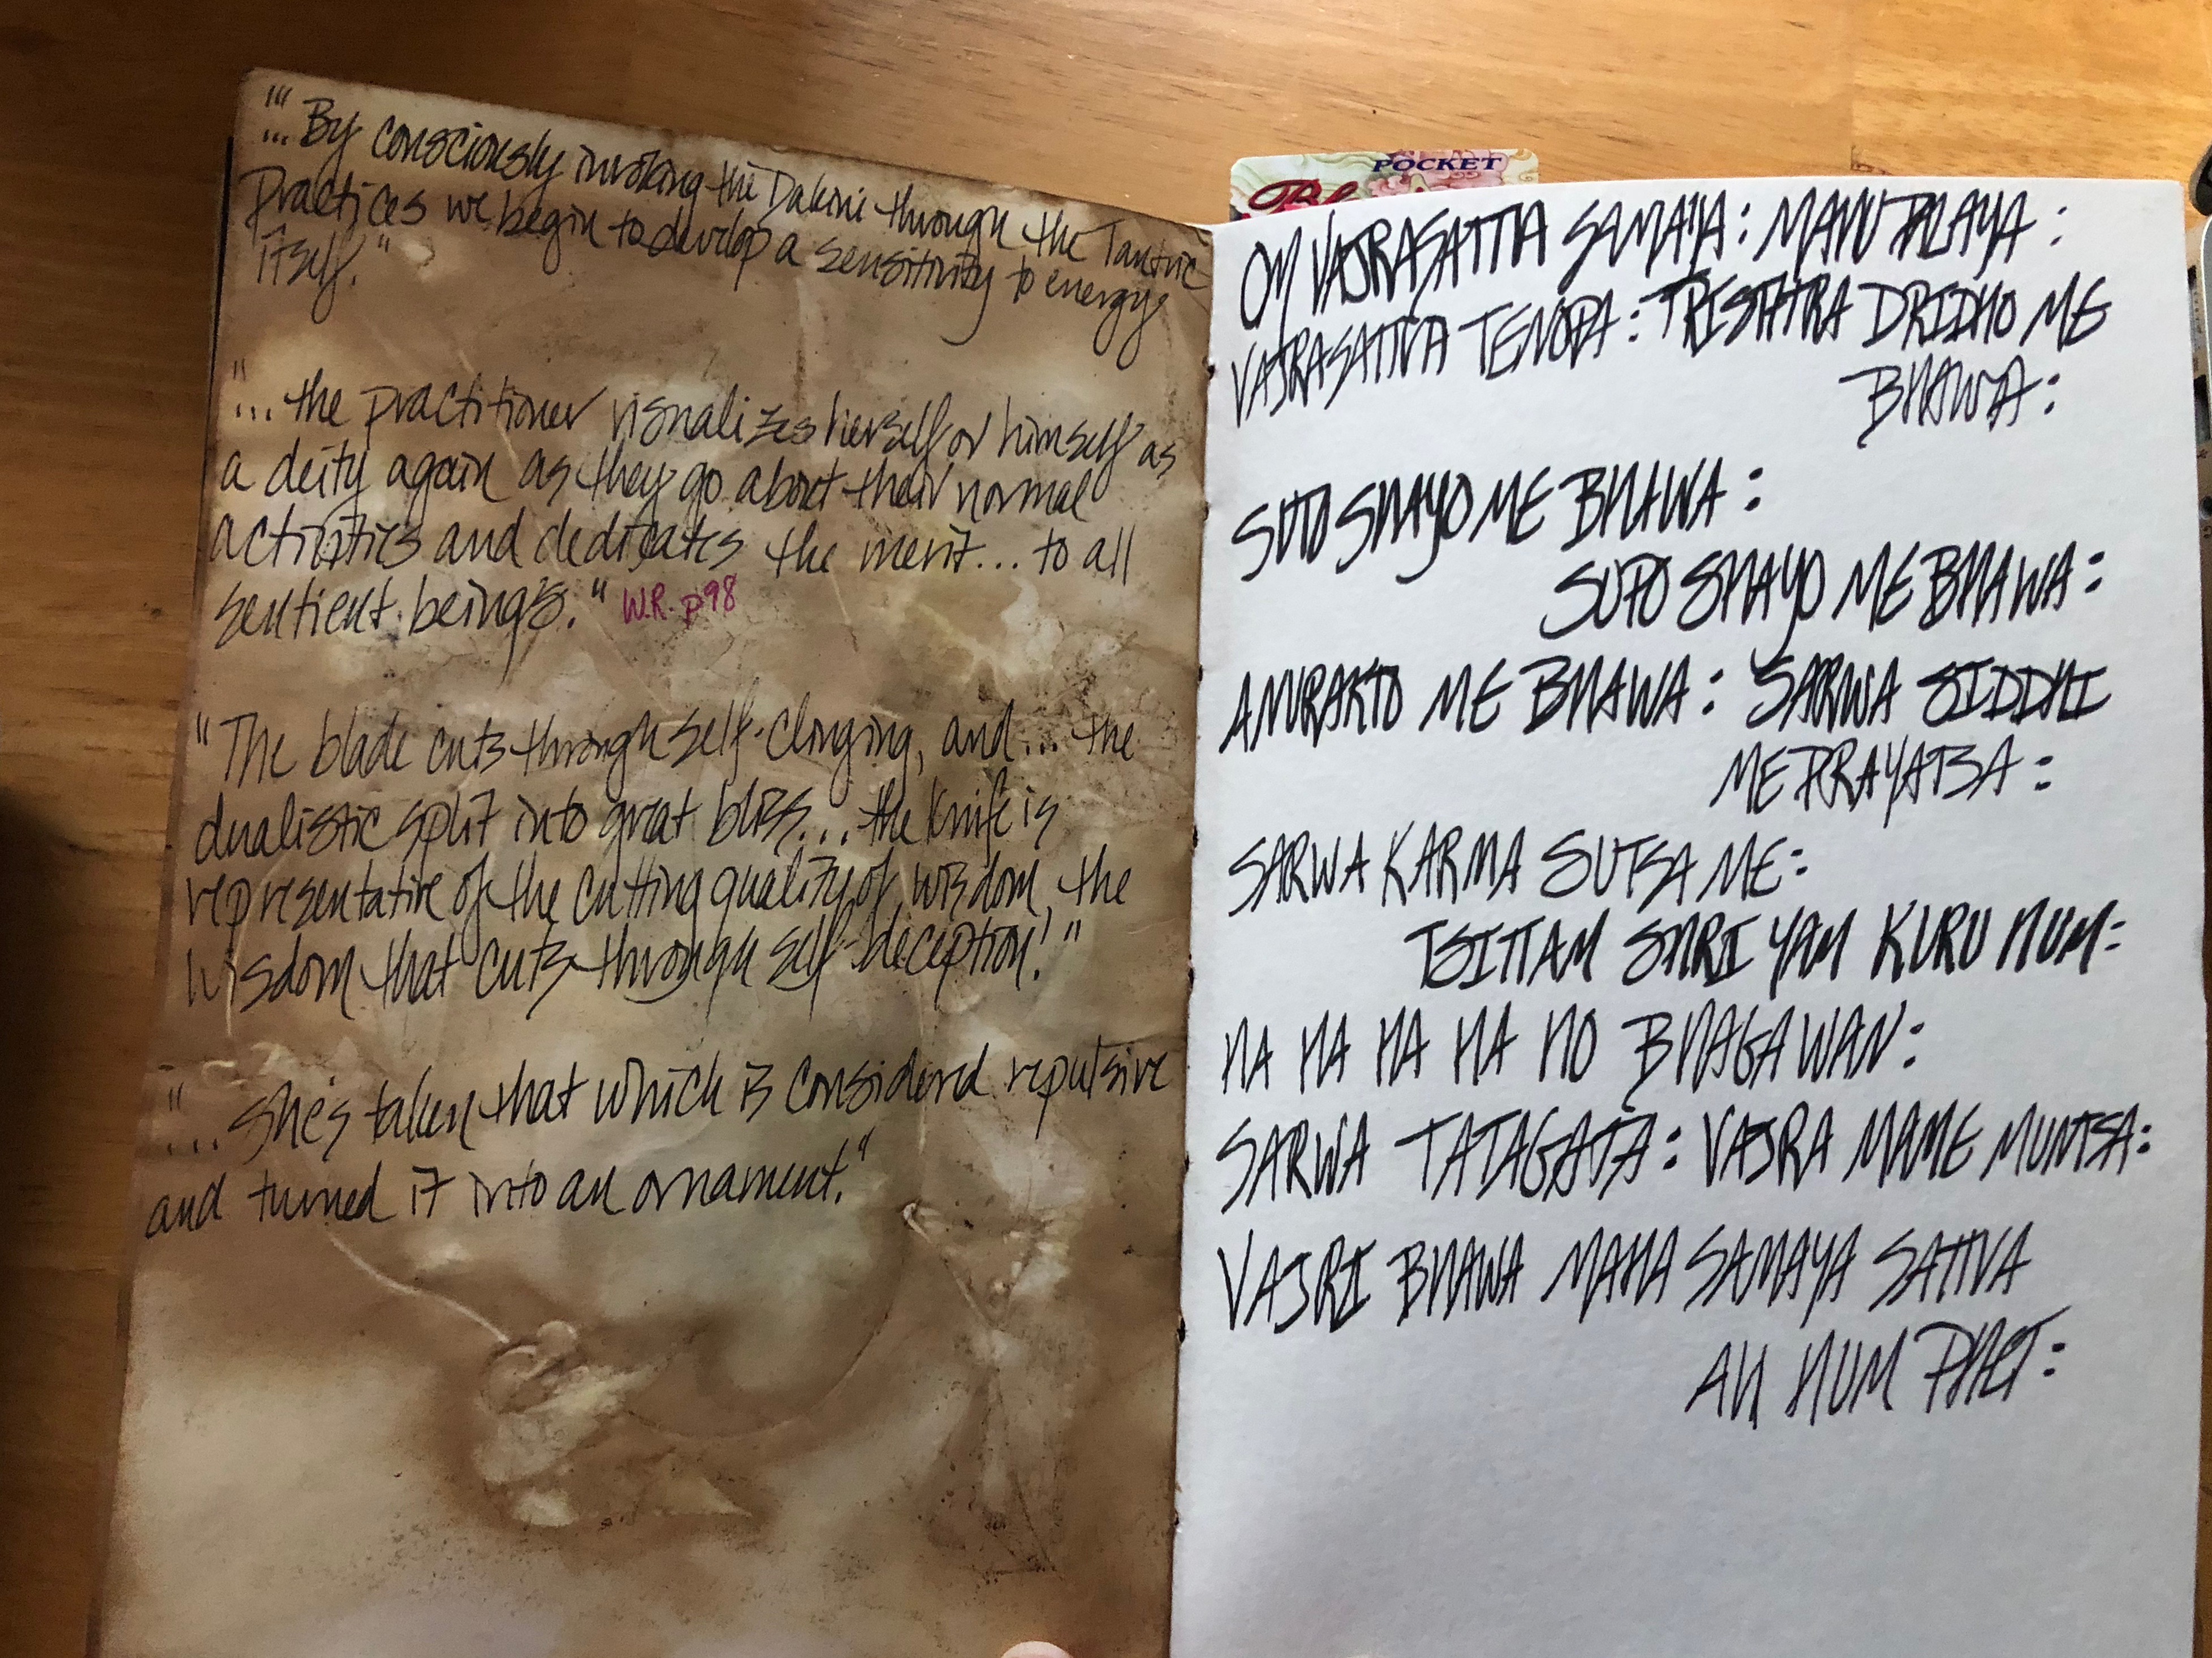 "... By consciously invoking the Dakini through the Tantric
Practices we begin to develop a sensitivity to energy
itself."
"... the practitioner visualizes herself or himself as
a deity again as they go about their normal
activities and dedicates the merit... to all
sentient beings." W.R. p98
"The blade cuts through self-clinging, and... the
dualistic split into great bliss... the knife is
representative of the cutting quality of wisdom, the
wisdom that cuts through self-deception!"
"... she's taken that which is considered repulsive
and turned it into an ornament."
POCKET
OM VAJRASATTVA SAMAYA: MANU PALAYA:
VAJRASATTVA TENOPA: TRISTHIRA DRIDHO ME
BHAWA:
SUTO SHAYO ME BHAWA:
SUPO SHAYO ME BHAWA:
ANURAKTO ME BHAWA: SARWA SIDDHI
ME PRAYATSA:
SARWA KARMA SUTSA ME:
TSITTAM SHRI YAM KURU HUM:
HA HA HA HA HO BHAGAWAN:
SARWA TATAGATA: VAJRA MAME MUNTSA:
VAJRI BHAWA MAHA SAMAYA SATTVA
AH HUM PHET: